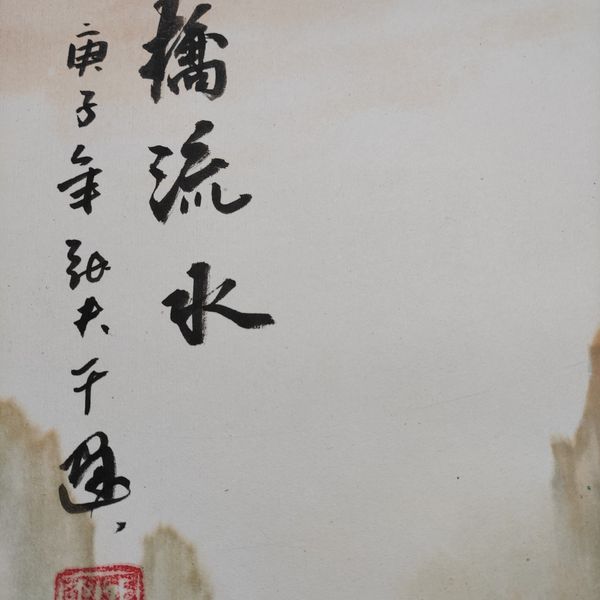 橋流水
庚子年張大千